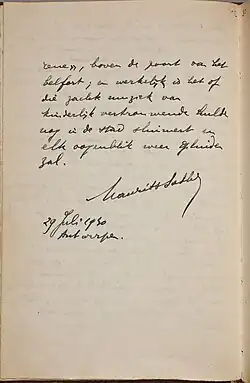 renen, boven de poort van het
belfort; en werkelijk is het of
die zachte muziek van
kinderlijk vertrouwende hulde
nog in de stad sluimert en
elk oogenblik weer opluiden
zal.
Maurits Sabbe
29 Juli 1930
Antwerpen.